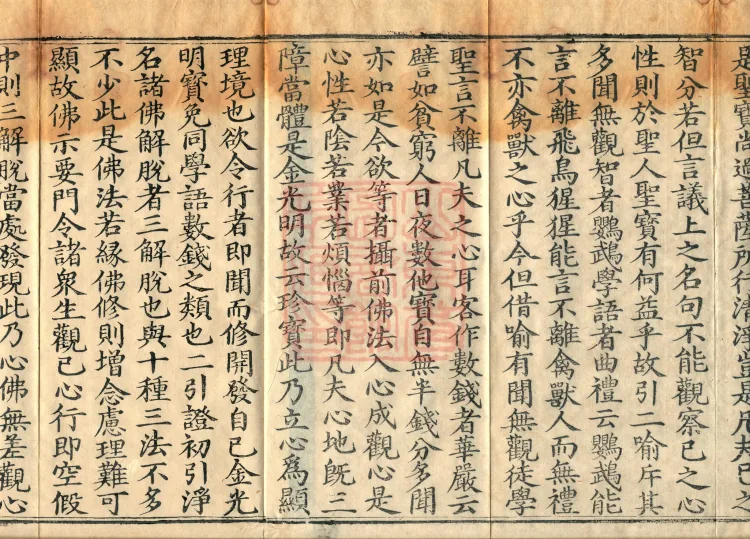 是聖寶尚過菩薩所行清淨豈是凡夫已之
智分若但言議上之名句不能觀察已之心
性則於聖人聖寶有何益乎故引二喻斥其
多聞無觀智者鸚鵡學語者曲禮云鸚鵡能
言不離飛鳥猩猩能言不離禽獸人而無禮
不亦禽獸之心乎今但借喻有聞無觀徒學
聖言不離凡夫之心耳客作數錢者華嚴云
譬如貧窮人日夜數他寶自無半錢分多聞
亦如是今欲等者攝前佛法入心成觀心是
心性若陰若業若煩惱等即凡夫心地旣三
障當體是金光明故云珍寶此乃立心為顯
理境也欲令行者即聞而修開發自己金光
明寶免同學語數錢之類也二引證初引淨
名諸佛解脫者三解脫也與十種三法不多
不少此是佛法若緣佛修則增念慮理難可
顯故佛示要門令諸衆生觀已心行即空假
中則三解脫當處發現此乃心佛無差觀心